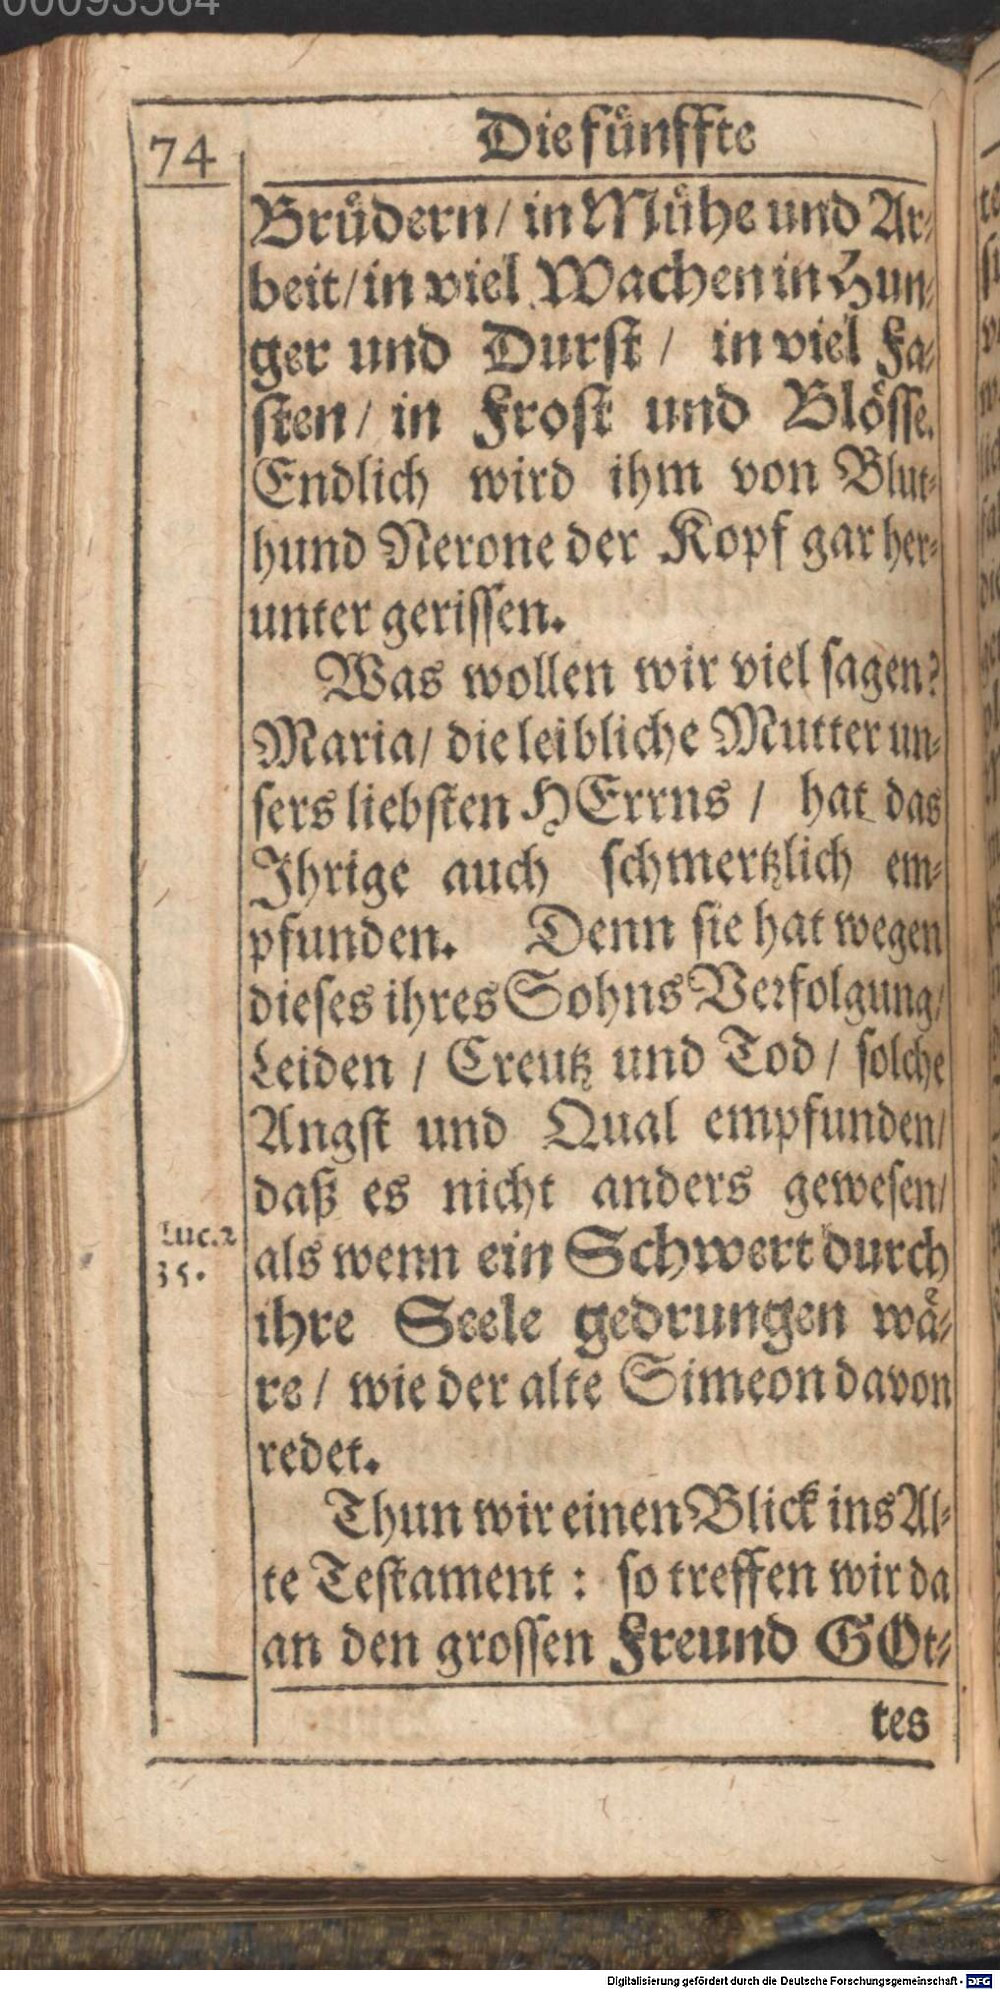 74
Die fuͤnffte
Bruͤdern / in Muͤhe und Ar⸗
beit / in viel Wachen in Hun⸗
ger und Durſt / in viel Fa⸗
ſten / in Froſt und Bloͤſſe.
Endlich wird ihm von Blut⸗
hund Nerone der Kopf gar her⸗
unter geriſſen.
Was wollen wir viel ſagen?
Maria / die leibliche Mutter un⸗
ſers liebſten HErrns / hat das
Ihrige auch ſchmertzlich em⸗
pfunden. Denn ſie hat wegen
dieſes ihres Sohns Verfolgung /
Leiden / Creutz und Tod / ſolche
Angſt und Qual empfunden /
daß es nicht anders geweſen /
Luc. 2
als wenn ein Schwert durch
35.
ihre Seele gedrungen waͤ⸗
re / wie der alte Simeon davon
redet.
Thun wir einen Blick ins Al⸗
te Teſtament : ſo treffen wir da
an den groſſen Freund GOt⸗
tes
Digitalisierung gefördert durch die Deutsche Forschungsgemeinschaft - DFG